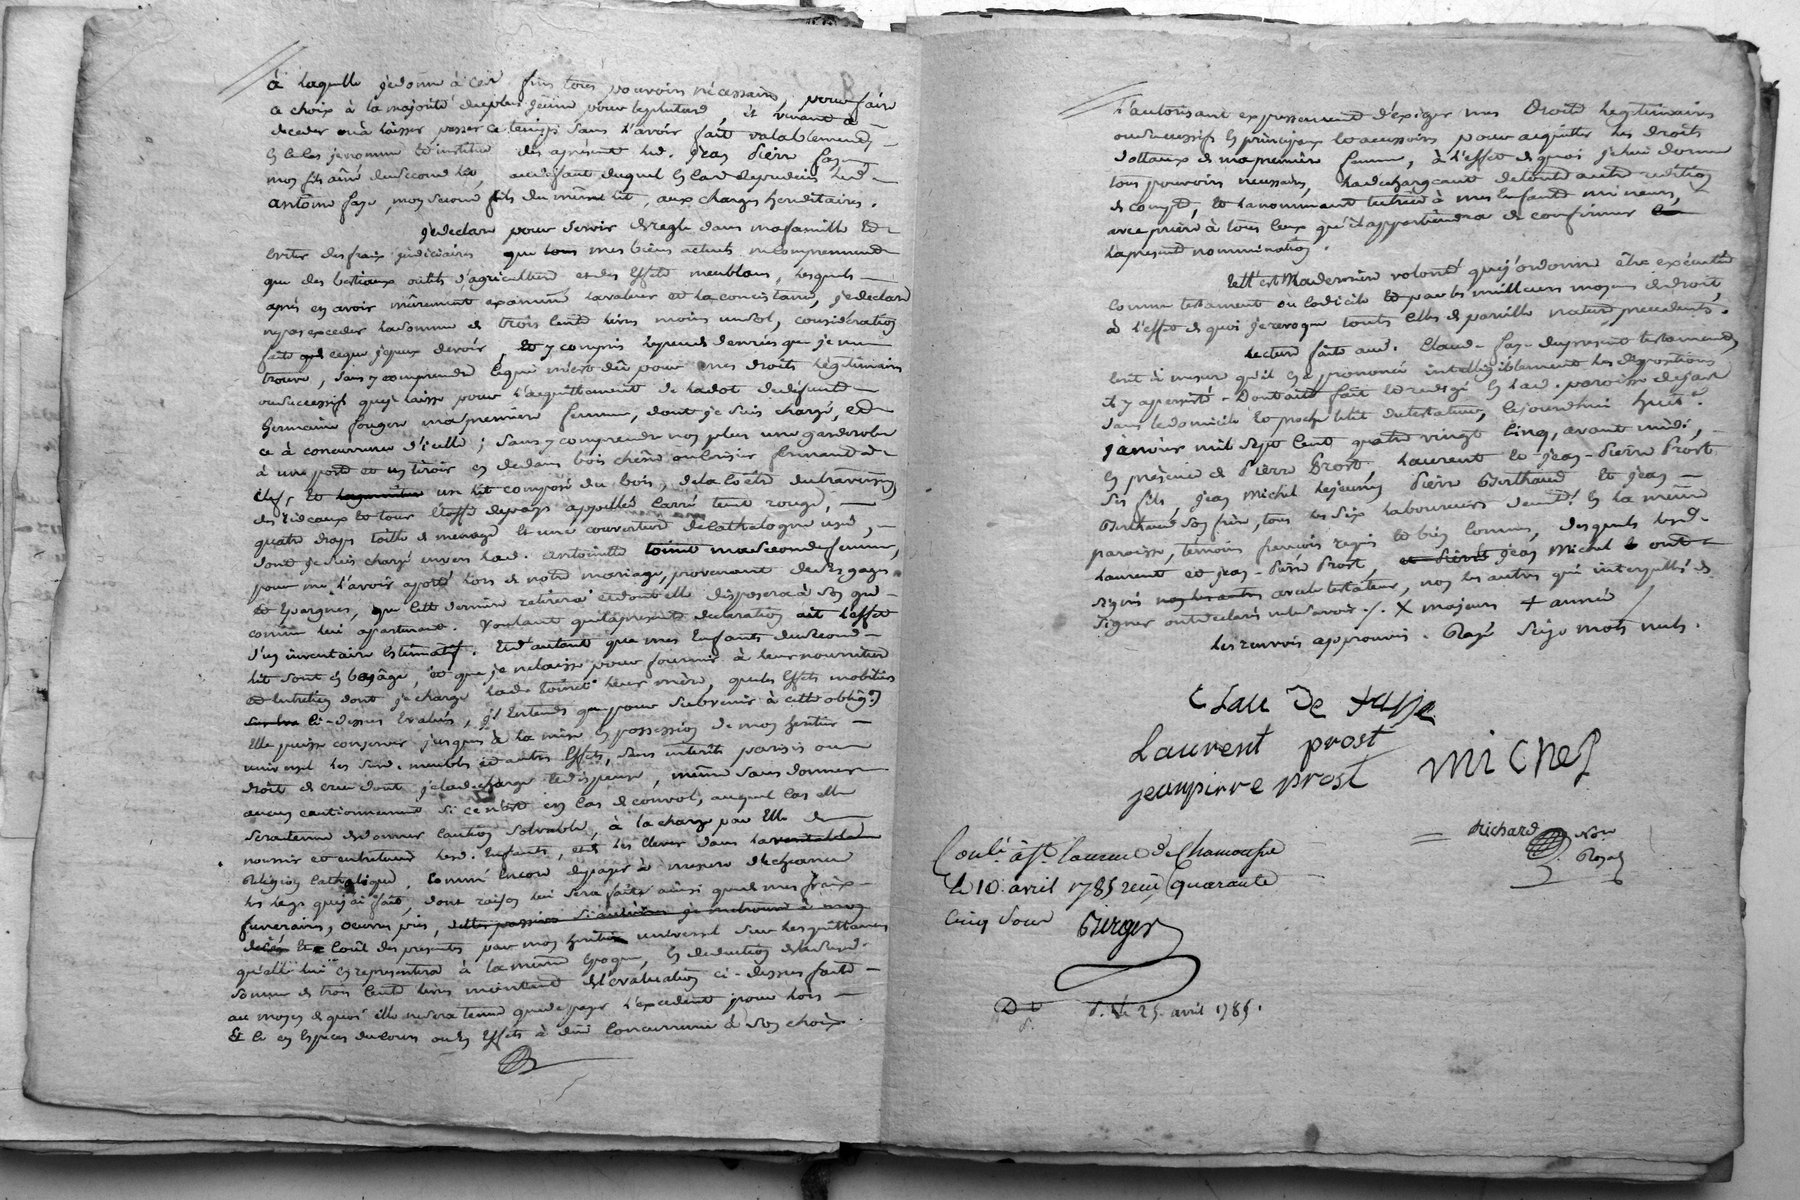 à laquelle je donne à cet fin tous pouvoirs nécessaires, pour faire
ce choix à la majorité du plus jeune pour legitaires, et venant à
deceder ou à laisser passer ce temps sans l'avoir fait valablement
je nomme et institue dès aprésent led. Jean Pierre faye
mon fils aîné du second lit, au deffaut duquel led
antoine faye, mon second fils du même lit, aux charges hereditaires.
Je declare pour servir de regle dans ma famille et
eviter des fraix judiciaires que tous mes biens actuels ne comprennent
que des bestiaux outils d'agriculture et des effets meublans, lesquels
après en avoir mûrement examiné la valeur et la consistance, je declare
n'pas exceder la somme de trois cents livres moins un sol, consideration
faite de ce que je peux devoir, et y compris le peu de denrées que je me
trouve, sans y comprendre ce qui m'est dû pour mes droits légitimaires
ou successifs que je laisse pour l'acquittement de la dot de defunte
Germaine fougere ma premiere femme, dont je suis chargé, et
ce à concurrence d'icelle; sans y comprendre non plus une garderobe
à une porte et un tiroir en dedans bois chêne ou cerisier fermant à
clef, un lit composé du bois, de la coëtre du traversin
des rideaux et tour étoffe du pays appellés carré teint rouge,
quatre draps toile de menage et une couverture de Cathalogne usé,
dont je suis chargé envers lad. antoinette toinet ma seconde femme,
pour me l'avoir aporté lors de notre mariage, provenant de ses gages
et épargnes, que cette derniere retirera et dont elle disposera à son gré
comme lui apartenant. Voulant que la presente declaration ait l'effet
d'un inventaire estimatif. Et d'autant que mes enfants du second
lit sont en bas âge, et que je ne laisse pour fournir à leur nourriture
et entretien dont je charge lad. toinet leur mère, que les effets mobiliers
ci-dessus evalués, j'entends que pour subvenir à cette oblig.on
elle puisse conserver jusques à la mise en possession de mon heritier
universel les susd. meubles et autres effets, sans interêts parisis ou
droit de crue dont je la decharge et dispense, même sans donner
aucun cautionnement si ce n'est en cas de convol, auquel cas elle
sera tenue de donner caution solvable, à la charge par elle de
nourrir et entretenir lesd. enfants, et de les elever dans la
Réligion Catholique, comme encore de payer à mesure d'echeance
les legs que j'ai fait, dont raison lui sera faite ainsi que de mes fraix
funeraires, oeuvres pies, et coût des presentes par mon heritier universel sur les quittances
qu'elle lui en representera à la même époque, en deduction de la susd.
somme de trois cents livres montant de l'evaluation ci-dessus faite
au moyen de quoi elle ne sera tenue que de payer l'excedent pour lors
et ce en especes du cours ou en effets à dûe concurrence à son choix.
L'autorisant expressement d'exiger mes droits legitimaires
ou successifs en principaux et accessoires pour acquitter les droits
dottaux de ma premiere femme, à l'effet de quoi je lui donne
tous pouvoirs necessaires, la dechargeant de toute autre reddition
de compte, et la nommant tutrice à mes enfants mineurs,
avec priere à tous ceux qu'il appartiendra de confirmer
la presente nommination.
Telle est ma derniere volonté que j'ordonne être executée
comme testament ou codicile et par les meilleurs moyens de droit,
à l'effet de quoi je revoque touts elles de pareille nature precedents.
Lecture faite aud. Claude faye du present testament
écrit à mesure qu'il en a prononcé intelligiblement les dispositions
il y a persisté. Dont acte fait et redigé en lad. paroisse de
dans le domicile et proche le lit du testateur, cejourdhui huit
janvier mil sept cent quatre vingt cinq, avant midi,
en presence de Pierre Prost, Laurent et Jean-Pierre Prost
ses fils, Jean Michel lejeune, Pierre Berthaud et Jean
Berthaud son frere, tous les six laboureurs demt. en la même
paroisse, témoins requis et bien connus, desquels lesd.
Laurent et Jean-Pierre Prost, Jean Michel ont
signés avec le testateur, non les autres qui interpellés de
signer ont declaré ne le savoir ./. X majeurs + année
les renvois approuvés. Rayé seize mots nuls.
Clau De faye
Laurent prost
Michel
jeanpierre prost
Richard Nore
Royal
Conlé. à St. Laurent de Chamousset
le 10 avril 1785 reçu quarante
cinq sous Berger
D. le 25 avril 1785.